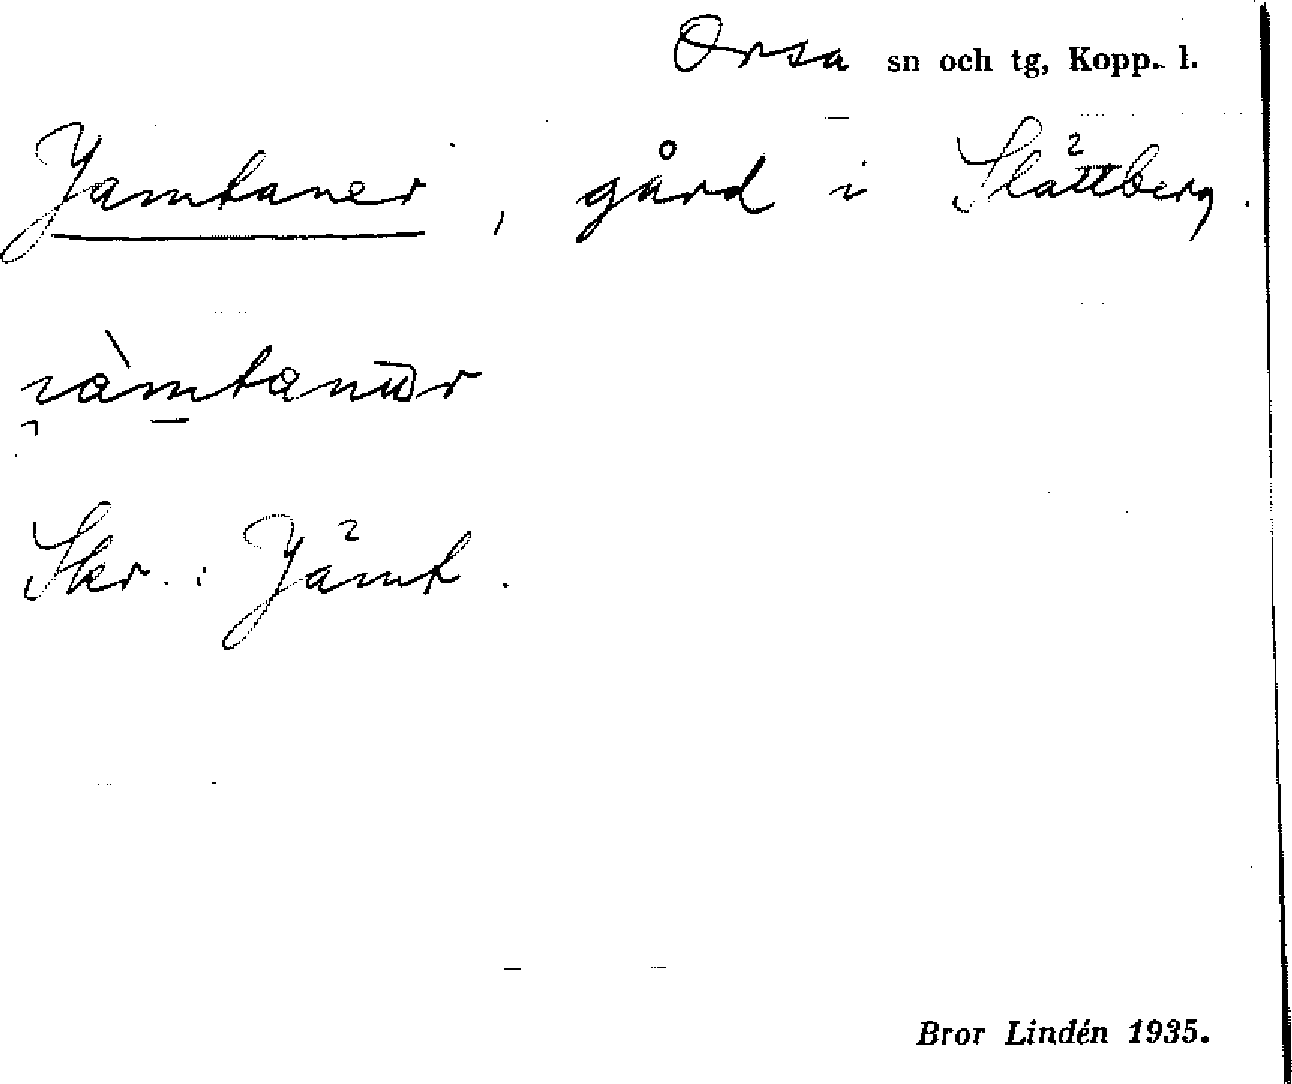 Orsa sn och tg, Kopp. l.
Jamtaner, gård i Slättberg.
Skr. : Jämt.
Bror Lindén 1935.